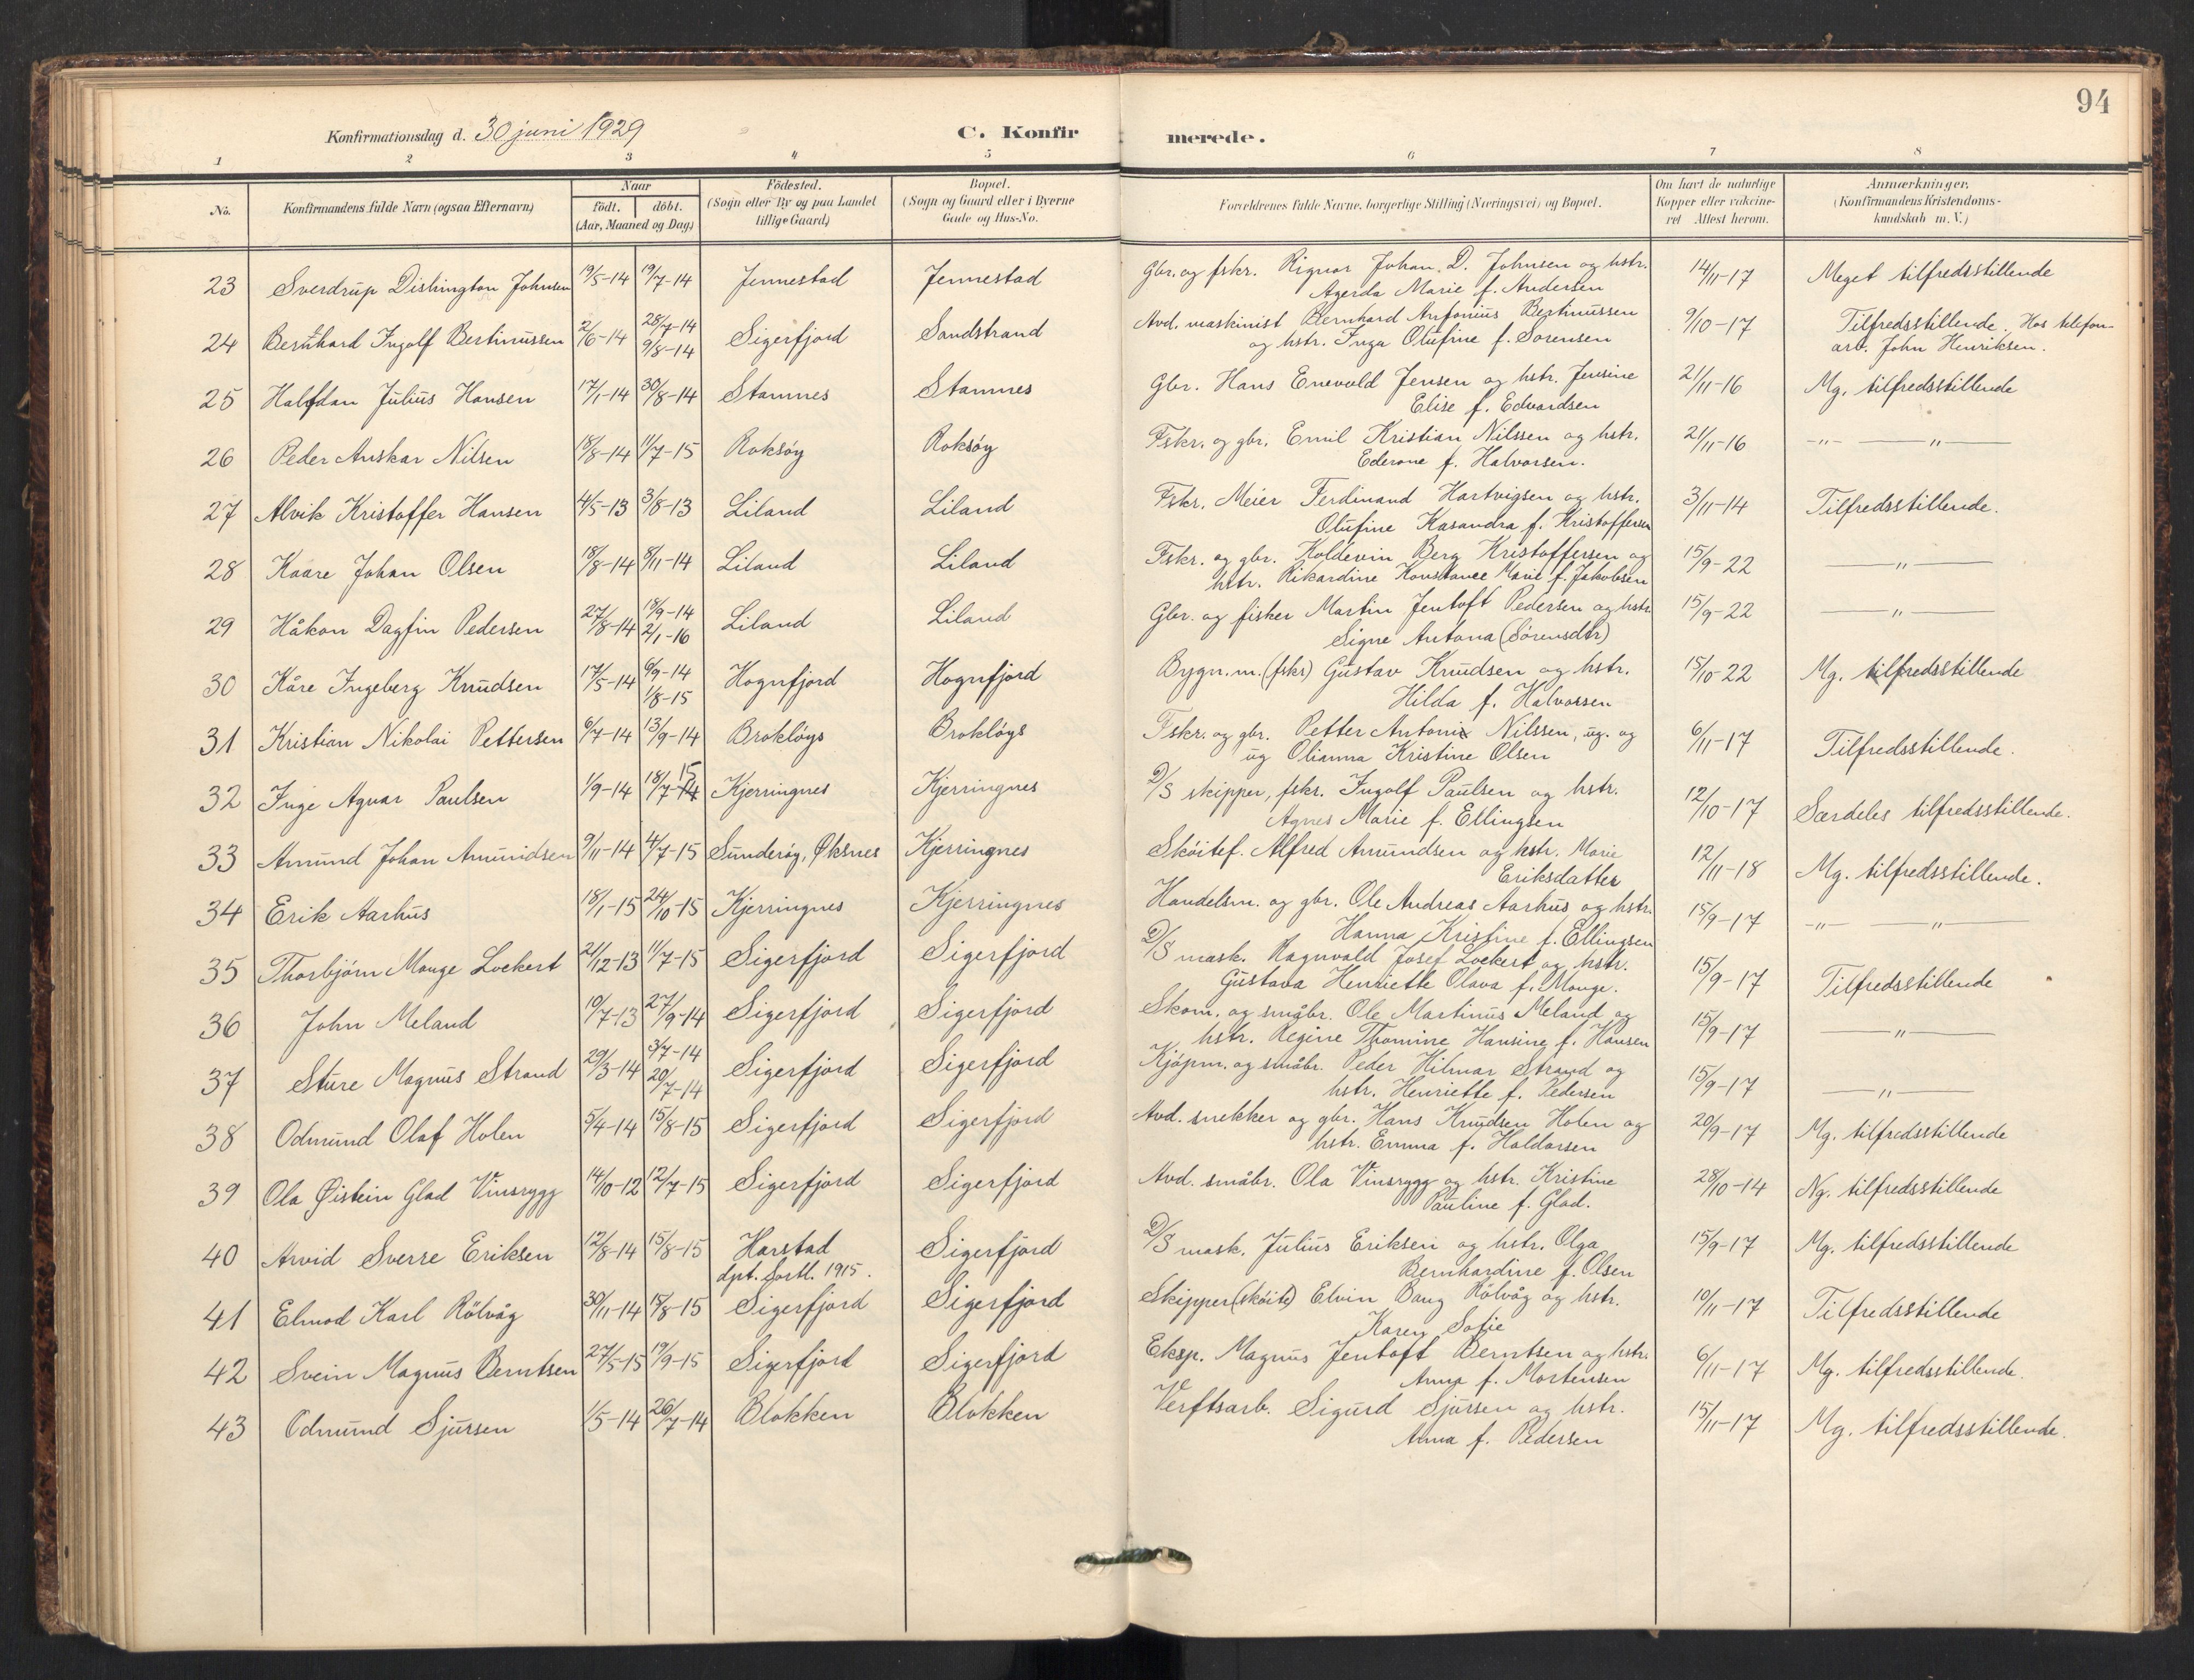 94
Konfirmationsdag d. 30 juni 1929
C. Konfirmerede.
1 2 3 4 5 6 7 8
No. | Konfirmandens fulde Navn (ogsaa Efternavn) | Naar født. døbt. (Aar, Maaned og Dag) | Födested. (Sogn eller By og paa Landet tillige Gaard) | Bopæl. (Sogn og Gaard eller i Byerne Gade og Hus-No. | Forældrenes fulde Navne, borgerlige Stilling (Næringsvei) og Bopæl. | Om havt de naturlige Kopper eller vakcineret Attest herom. | Anmærkninger. (Konfirmandens Kristendomskundskab m. V.)
23 Sverdrup Dishington Johnsen 19/5-14 19/7-14 Jennestad Jennestad Gbr. og fskr. Rignor Johan. D. Johnsen og hstr. Agerda Marie f. Andersen 14/11-17 Meget tilfredsstillende
24 Bernhard Ingolf Bertinussen 2/6-14 28/7-14 9/8-14 Sigerfjord Sandstrand Avd. maskinist Bernhard Antonius Bertinussen og hstr. Inga Olufine f. Sørensen 9/10-17 Tilfredsstillende. Hos telefonarb. John Henriksen.
25 Halfdan Julius Hansen 17/1-14 30/8-14 Stamnes Stamnes Gbr. Hans Enevold Jensen og hstr. Jensine Elise f. Edvardsen 21/11-16 Mg. tilfredsstillende
26 Peder Anskar Nilsen 18/8-14 11/7-15 Roksøy Roksøy Fskr. og gbr. Emil Kristian Nilssen og hstr. Ederone f. Halvorsen. 21/11-16 -"- -"-
27 Alvik Kristoffer Hansen 4/5-13 3/8-13 Liland Liland Fskr. Meier Ferdinand Hartvigsen og hstr. Olufine Kasandra f. Kristoffersen 3/11-14 Tilfredsstillende.
28 Kaare Johan Olsen 18/8-14 8/11-14 Liland Liland Fskr. og gbr. Koldevin Berg Kristoffersen og hstr. Rikardine Konstance Marie f. Jakobsen 15/9-22 -"-
29 Håkon Dagfin Pedersen 27/8-14 18/9-14 2/1-16 Liland Liland Gbr. og fisker Martin Jentoft Pedersen og hstr. Signe Antona (Sørensdtr) 15/9-22 -"-
30 Kåre Ingeberg Knudsen 17/5-14 6/9-14 1/8-15 Hognfjord Hognfjord Bygn.m. (fskr) Gustav Knudsen og hstr. Hilda f. Halvorsen 15/10-22 Mg. tilfredsstillende
31 Kristian Nikolai Pettersen 6/7-14 13/9-14 Brokløys Brokløys Fskr. og gbr. Petter Antoni Nilssen, ug. og ug Olianna Kristine Olsen 6/11-17 Tilfredsstillende.
32 Inge Agnar Paulsen 1/9-14 18/7-14 15 Kjerringnes Kjerringnes D/S skipper, fskr. Ingolf Paulsen og hstr. Agnes Marie f. Ellingsen 12/10-17 Særdeles tilfredsstillende.
33 Amund Johan Amundsen 9/11-14 4/7-15 Sunderøy, Øksnes Kjerringnes Skøitef. Alfred Amundsen og hstr. Marie Eriksdatter 12/11-18 Mg. tilfredsstillende.
34 Erik Aarhus 18/1-15 24/10-15 Kjerringnes Kjerringnes Handelsm. og gbr. Ole Andreas Aarhus og hstr. Hanna Kristine f. Ellingsen 15/9-17 -"- -"-
35 Thorbjørn Monge Lockert 21/12-13 11/7-15 Sigerfjord Sigerfjord D/S mask. Ragnvald Josef Lockert og hstr. Gustava Henriette Olava f. Monge. 15/9-17 Tilfredsstillende
36 John Meland 10/7-13 27/9-14 Sigerfjord Sigerfjord Skom. og småbr. Ole Martinus Meland og hstr. Regine Thomine Hansine f. Hansen 15/9-17 -"-
37 Sture Magnus Strand 29/3-14 3/7-14 20/7-14 Sigerfjord Sigerfjord Kjøpm. og småbr. Peder Hilmar Strand og hstr. Henriette f. Pedersen 15/9-17 -"-
38 Odmund Olaf Holen 5/4-14 15/8-15 Sigerfjord Sigerfjord Avd. snekker og gbr. Hans Knudsen Holen og hstr. Emma f. Haldorsen 20/9-17 Mg. tilfredsstillende
39 Ola Øistein Glad Vinsrygg 14/10-12 12/7-15 Sigerfjord Sigerfjord Avd. småbr. Ola Vinsrygg og hstr. Kristine Pauline f. Glad. 28/10-14 Ng. tilfredsstillende
40 Arvid Sverre Eriksen 12/8-14 15/8-15 Harstad dpt. Sortl. 1915. Sigerfjord D/S mask. Julius Eriksen og hstr. Olga Bernhardine f. Olsen 15/9-17 Mg. tilfredsstillende
41 Elmod Karl Rölvåg 30/11-14 15/8-15 Sigerfjord Sigerfjord Skipper (skøite) Elvin Bang Rölvåg og hstr. Karen Sofie 10/11-17 Tilfredsstillende
42 Svein Magnus Berntsen 27/5-15 19/9-15 Sigerfjord Sigerfjord Eksp. Magnus Jentoft Berntsen og hstr. Anna f. Mortensen 6/11-17 Mg. tilfredsstillende.
43 Odmund Sjursen 1/5-14 26/7-14 Blokken Blokken Verftsarb. Sigurd Sjursen og hstr. Anna f. Pedersen 15/11-17 Mg. tilfredsstillende.